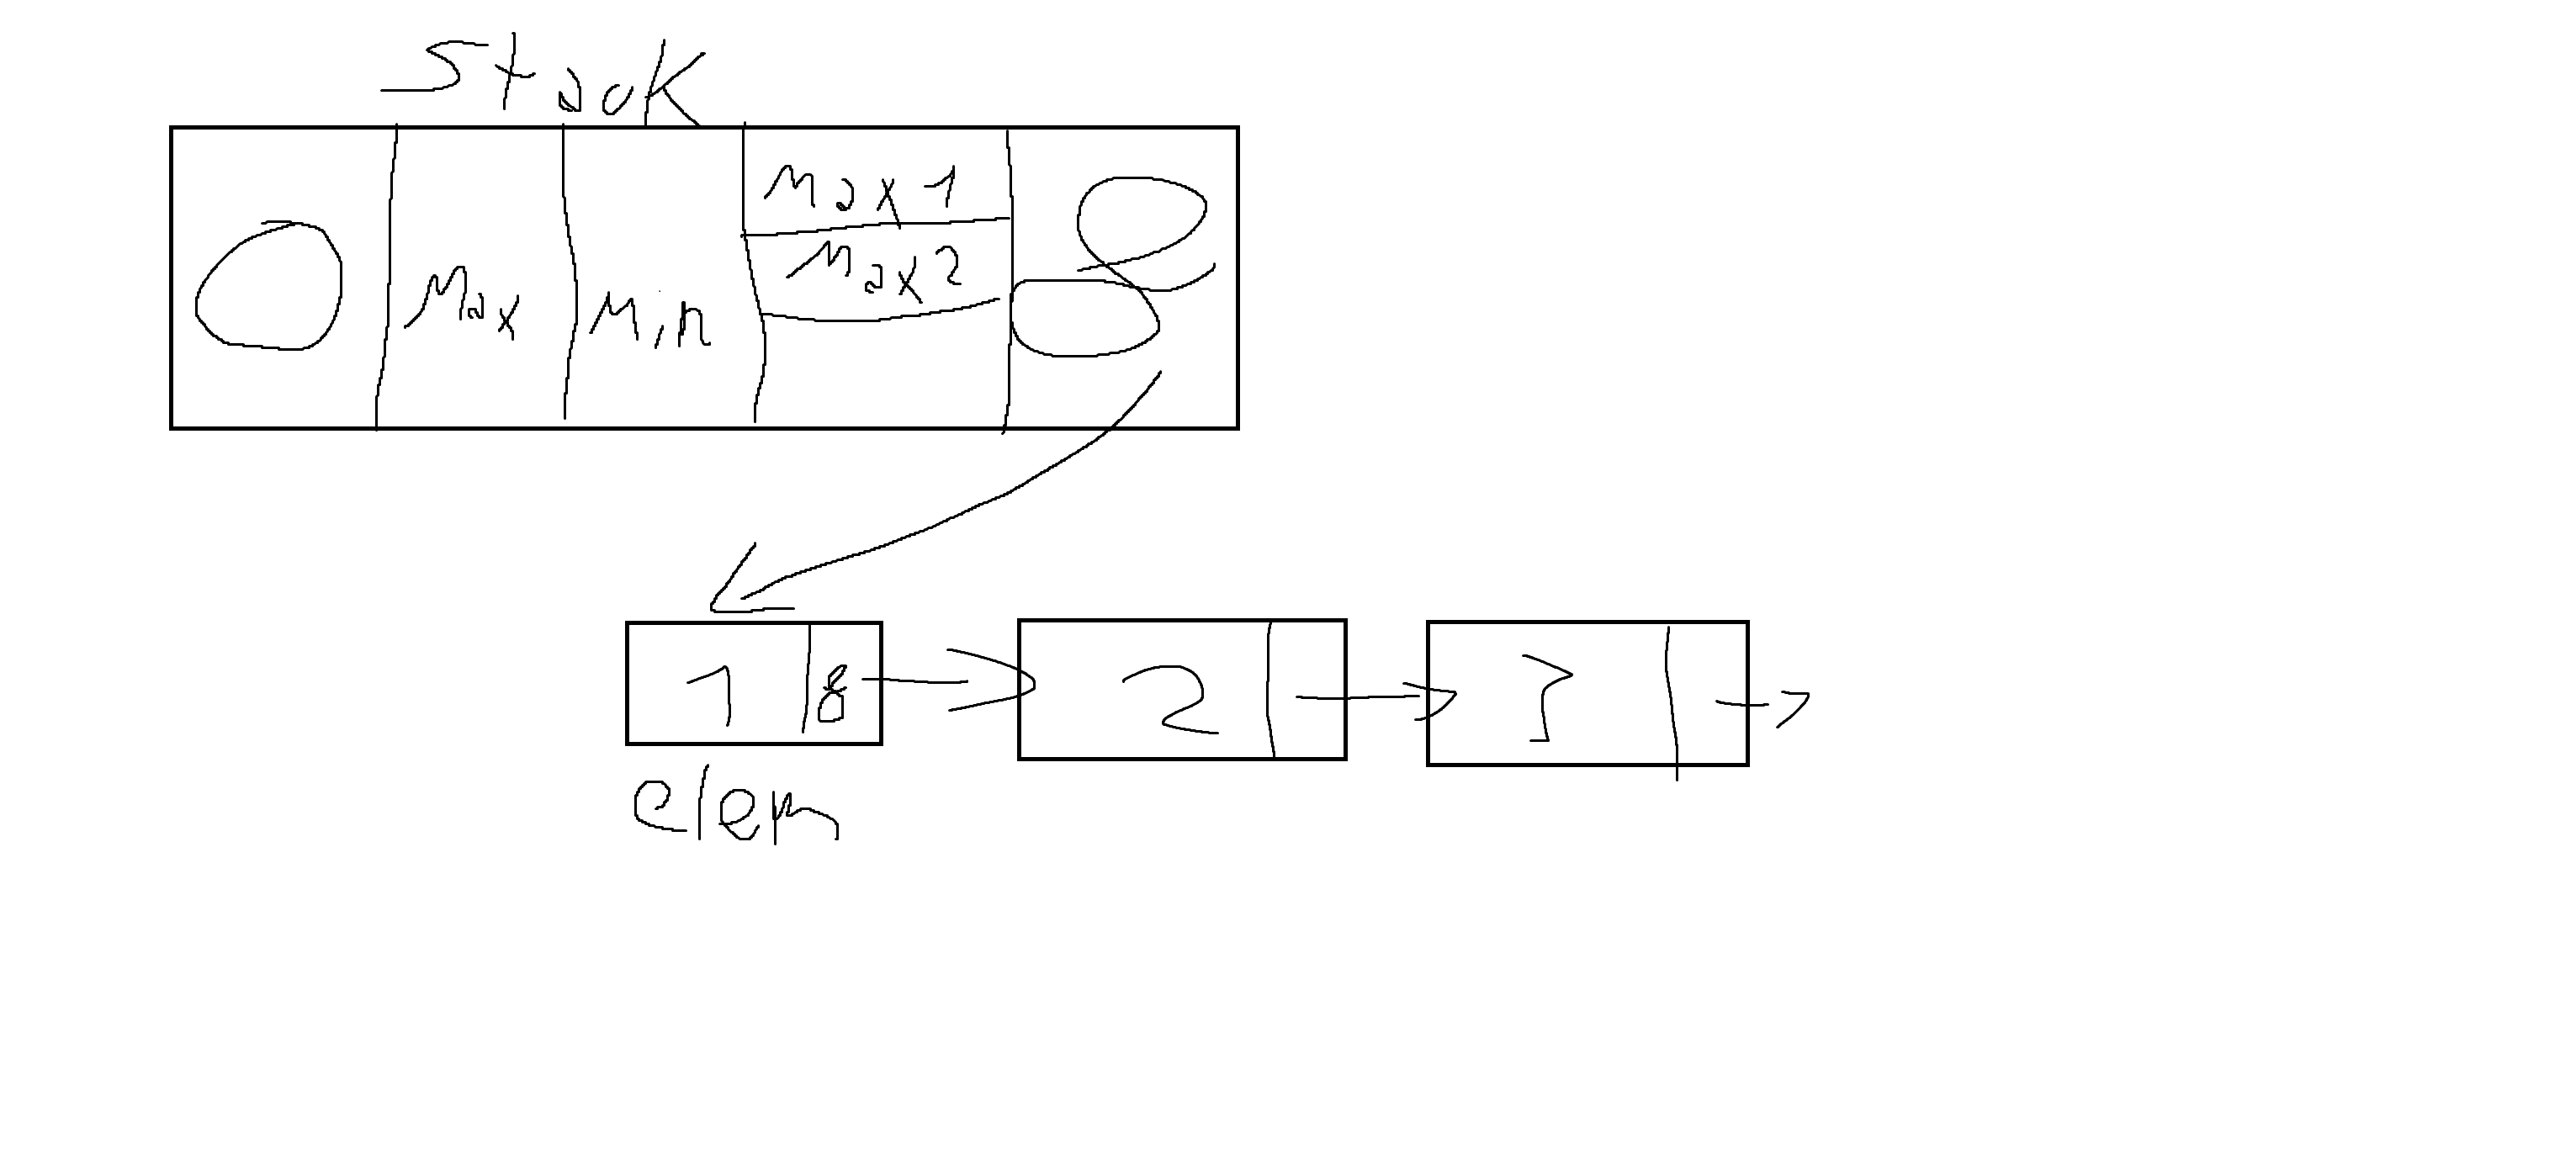 Stack
0 Max Min Max 1 &
Max 2
1 & 2 3
elem